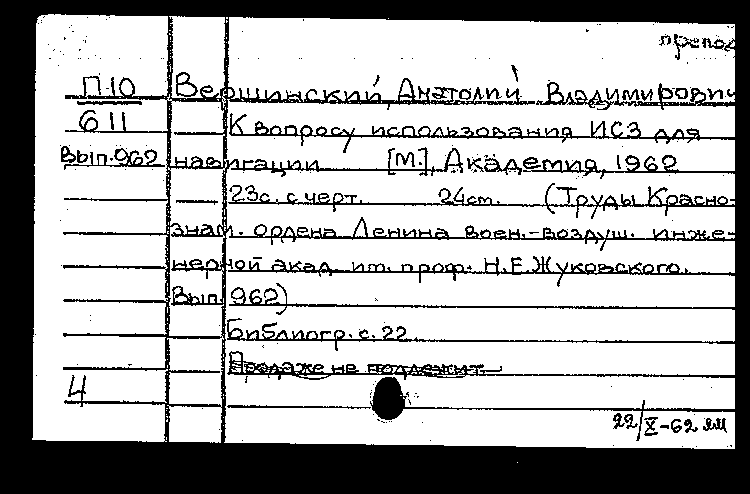 препод
П10 Вершинский, Анатолий Владимирович
611 К вопросу использования ИСЗ для
Вып.962 навигации [М.], Академия, 1962
23с. с черт. 24см. (Труды Красно-
знам. ордена Ленина воен.-воздуш. инже-
нерной акад. им. проф. Н.Е.Жуковского.
Вып. 962)
Библиогр. с. 22
Продаже не подлежит
4
22/X-62